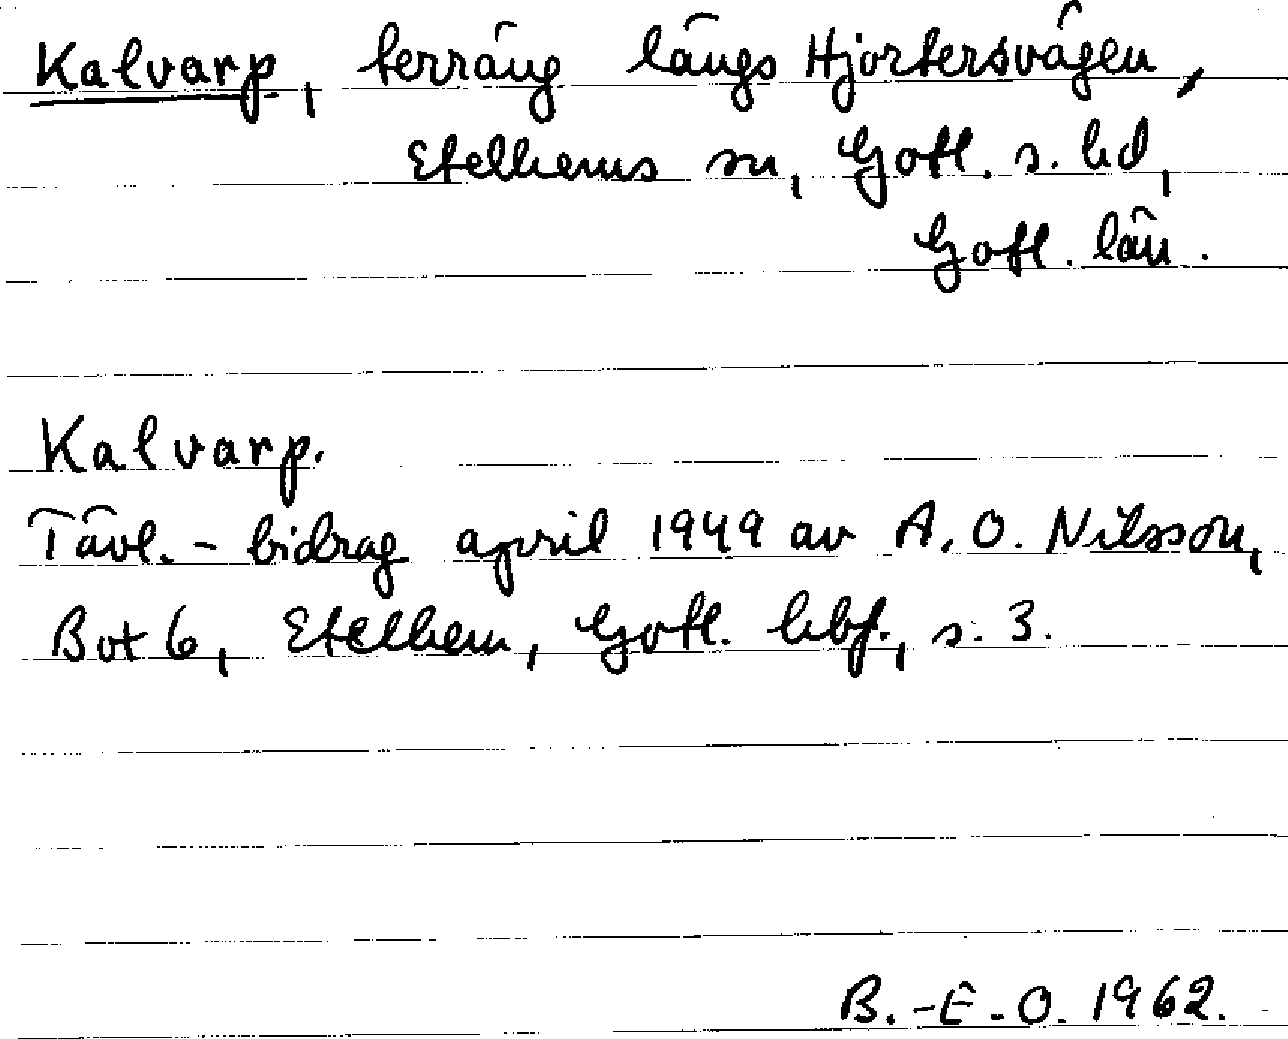 Kalvarp, terräng längs Hjortersvägen,
Etelhems sn, Gotl. s. hd,
Gotl. län.
Kalvarp.
Tävl.-bidrag april 1949 av A. O. Nilsson,
Bot 6, Etelhem, Gotl. hbf., s. 3.
B.-E.O. 1962.